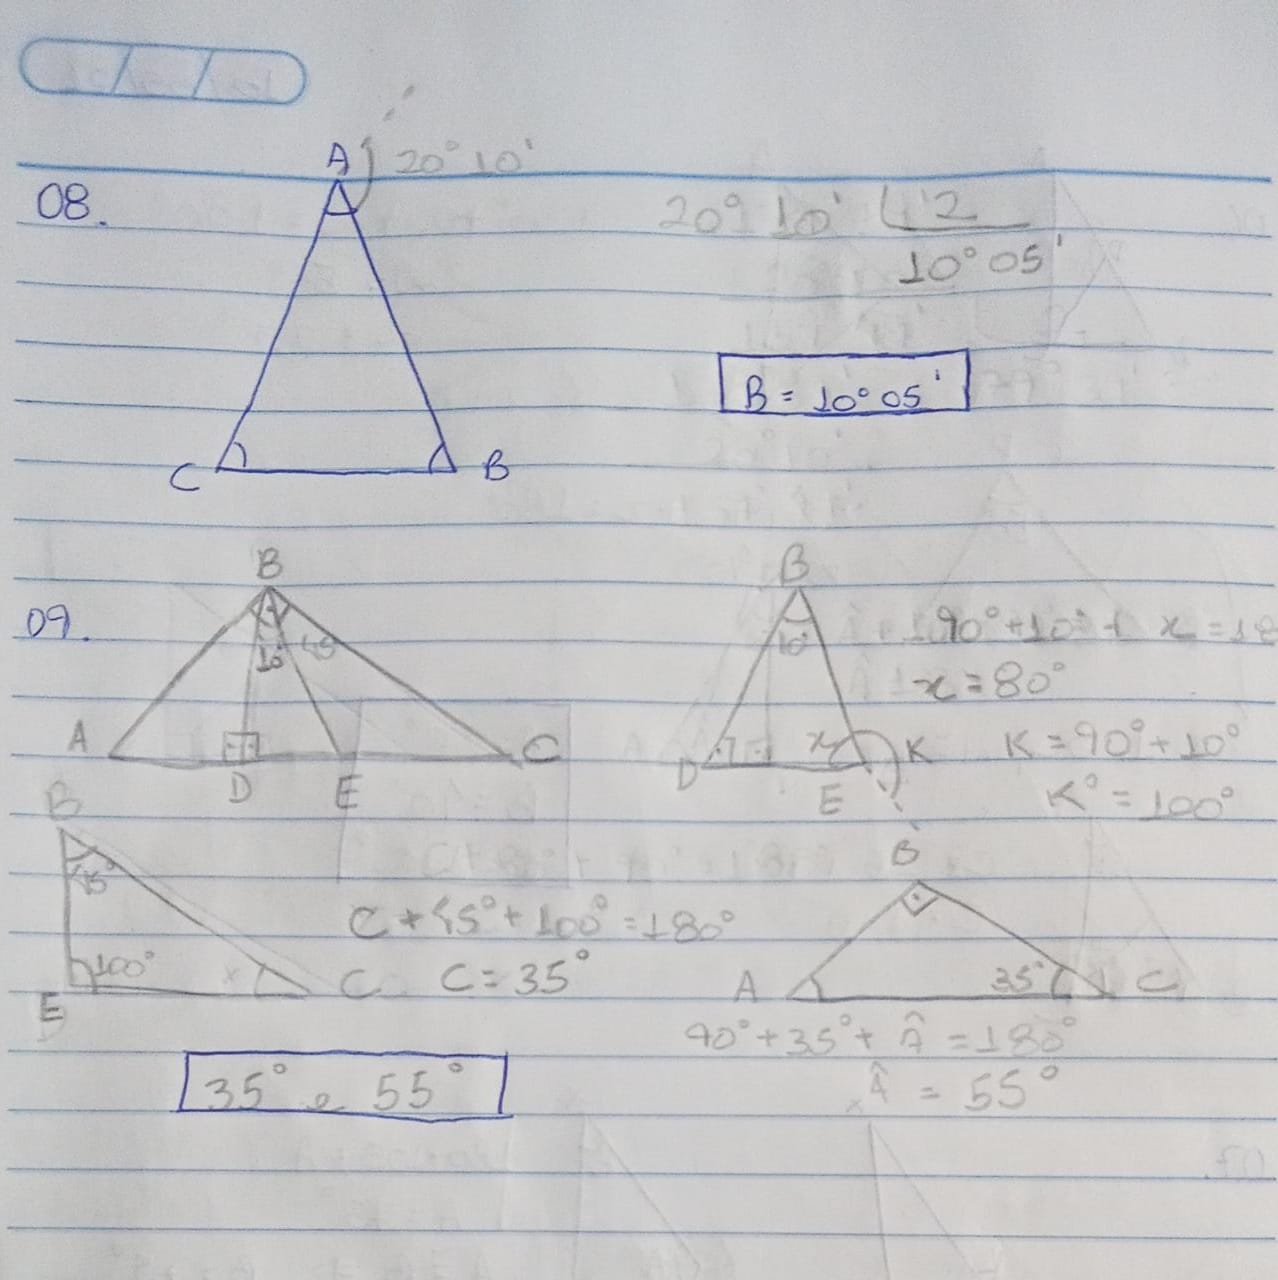 A 20° 10'
08.
20° 10' 2
10° 05'
B = 10° 05'
C B
09.
B
10° 45°
A D E C
B
10°
D x E K
90° + 10° + x = 18
x = 80°
K = 90° + 10°
K° = 100°
B
45°
100°
E C
C + 45° + 100° = 180°
C = 35°
B
A 35° C
90° + 35° + Â = 180°
Â = 55°
35° e 55°